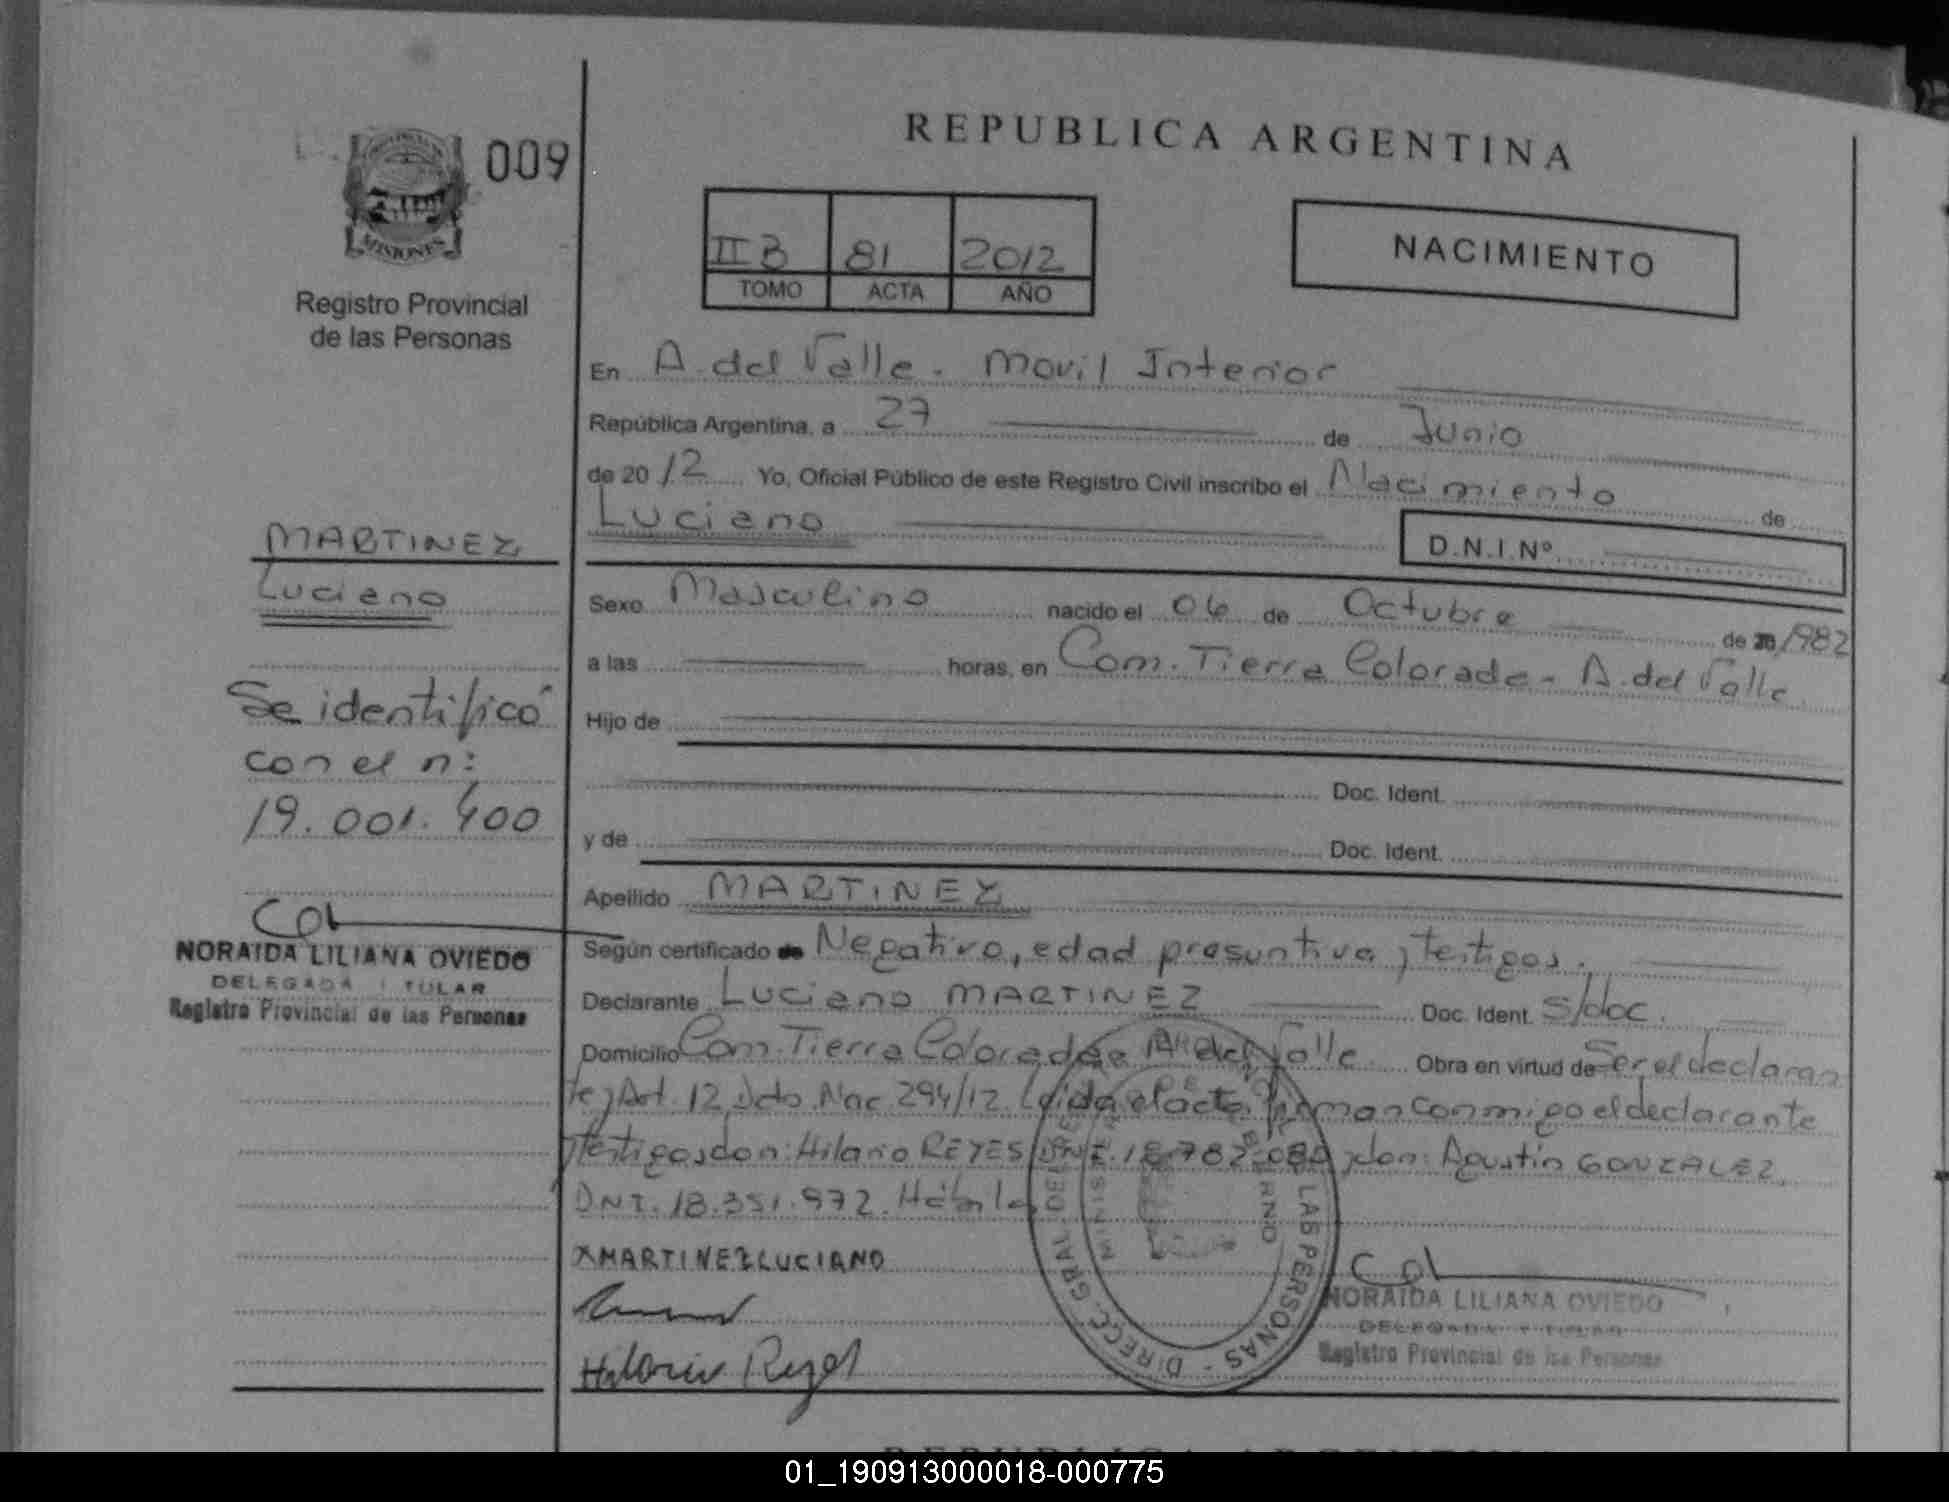 REPUBLICA ARGENTINA
009
MISIONES
Registro Provincial
de las Personas
II B 81 2012
TOMO ACTA AÑO
NACIMIENTO
En A. del Valle - Movil Interior
República Argentina, a 27 de Junio
de 2012 Yo, Oficial Público de este Registro Civil inscribo el Nacimiento de
Luciano D.N.I.Nº
Sexo Masculino nacido el 06 de Octubre de 1982
a las horas, en Com. Tierra Colorada - A. del Valle
Hijo de
Doc. Ident.
y de Doc. Ident.
Apellido MARTINEZ
Según certificado de Negativo, edad presuntiva y testigos.
Declarante Luciano MARTINEZ Doc. Ident. S/doc.
Domicilio Com. Tierra Colorada A. del Valle Obra en virtud de Ser el declaran
te y Art. 12 Dcto. Nac. 294/12 Leida el acta firman conmigo el declarante
y testigos don: Hilario REYES DNI. 18.782.080 y don: Agustín GONZALEZ
DNI. 18.351.972.
X MARTINEZ LUCIANO
Hilario Reyes
MARTINEZ
Luciano
Se identificó
con el n:
19.001.400
NORAIDA LILIANA OVIEDO
DELEGADA TITULAR
Registro Provincial de las Personas
DIRECC. GRAL. DEL LAS PERSONAS
NORAIDA LILIANA OVIEDO
DELEGADA TITULAR
Registro Provincial de las Personas
01_190913000018-000775